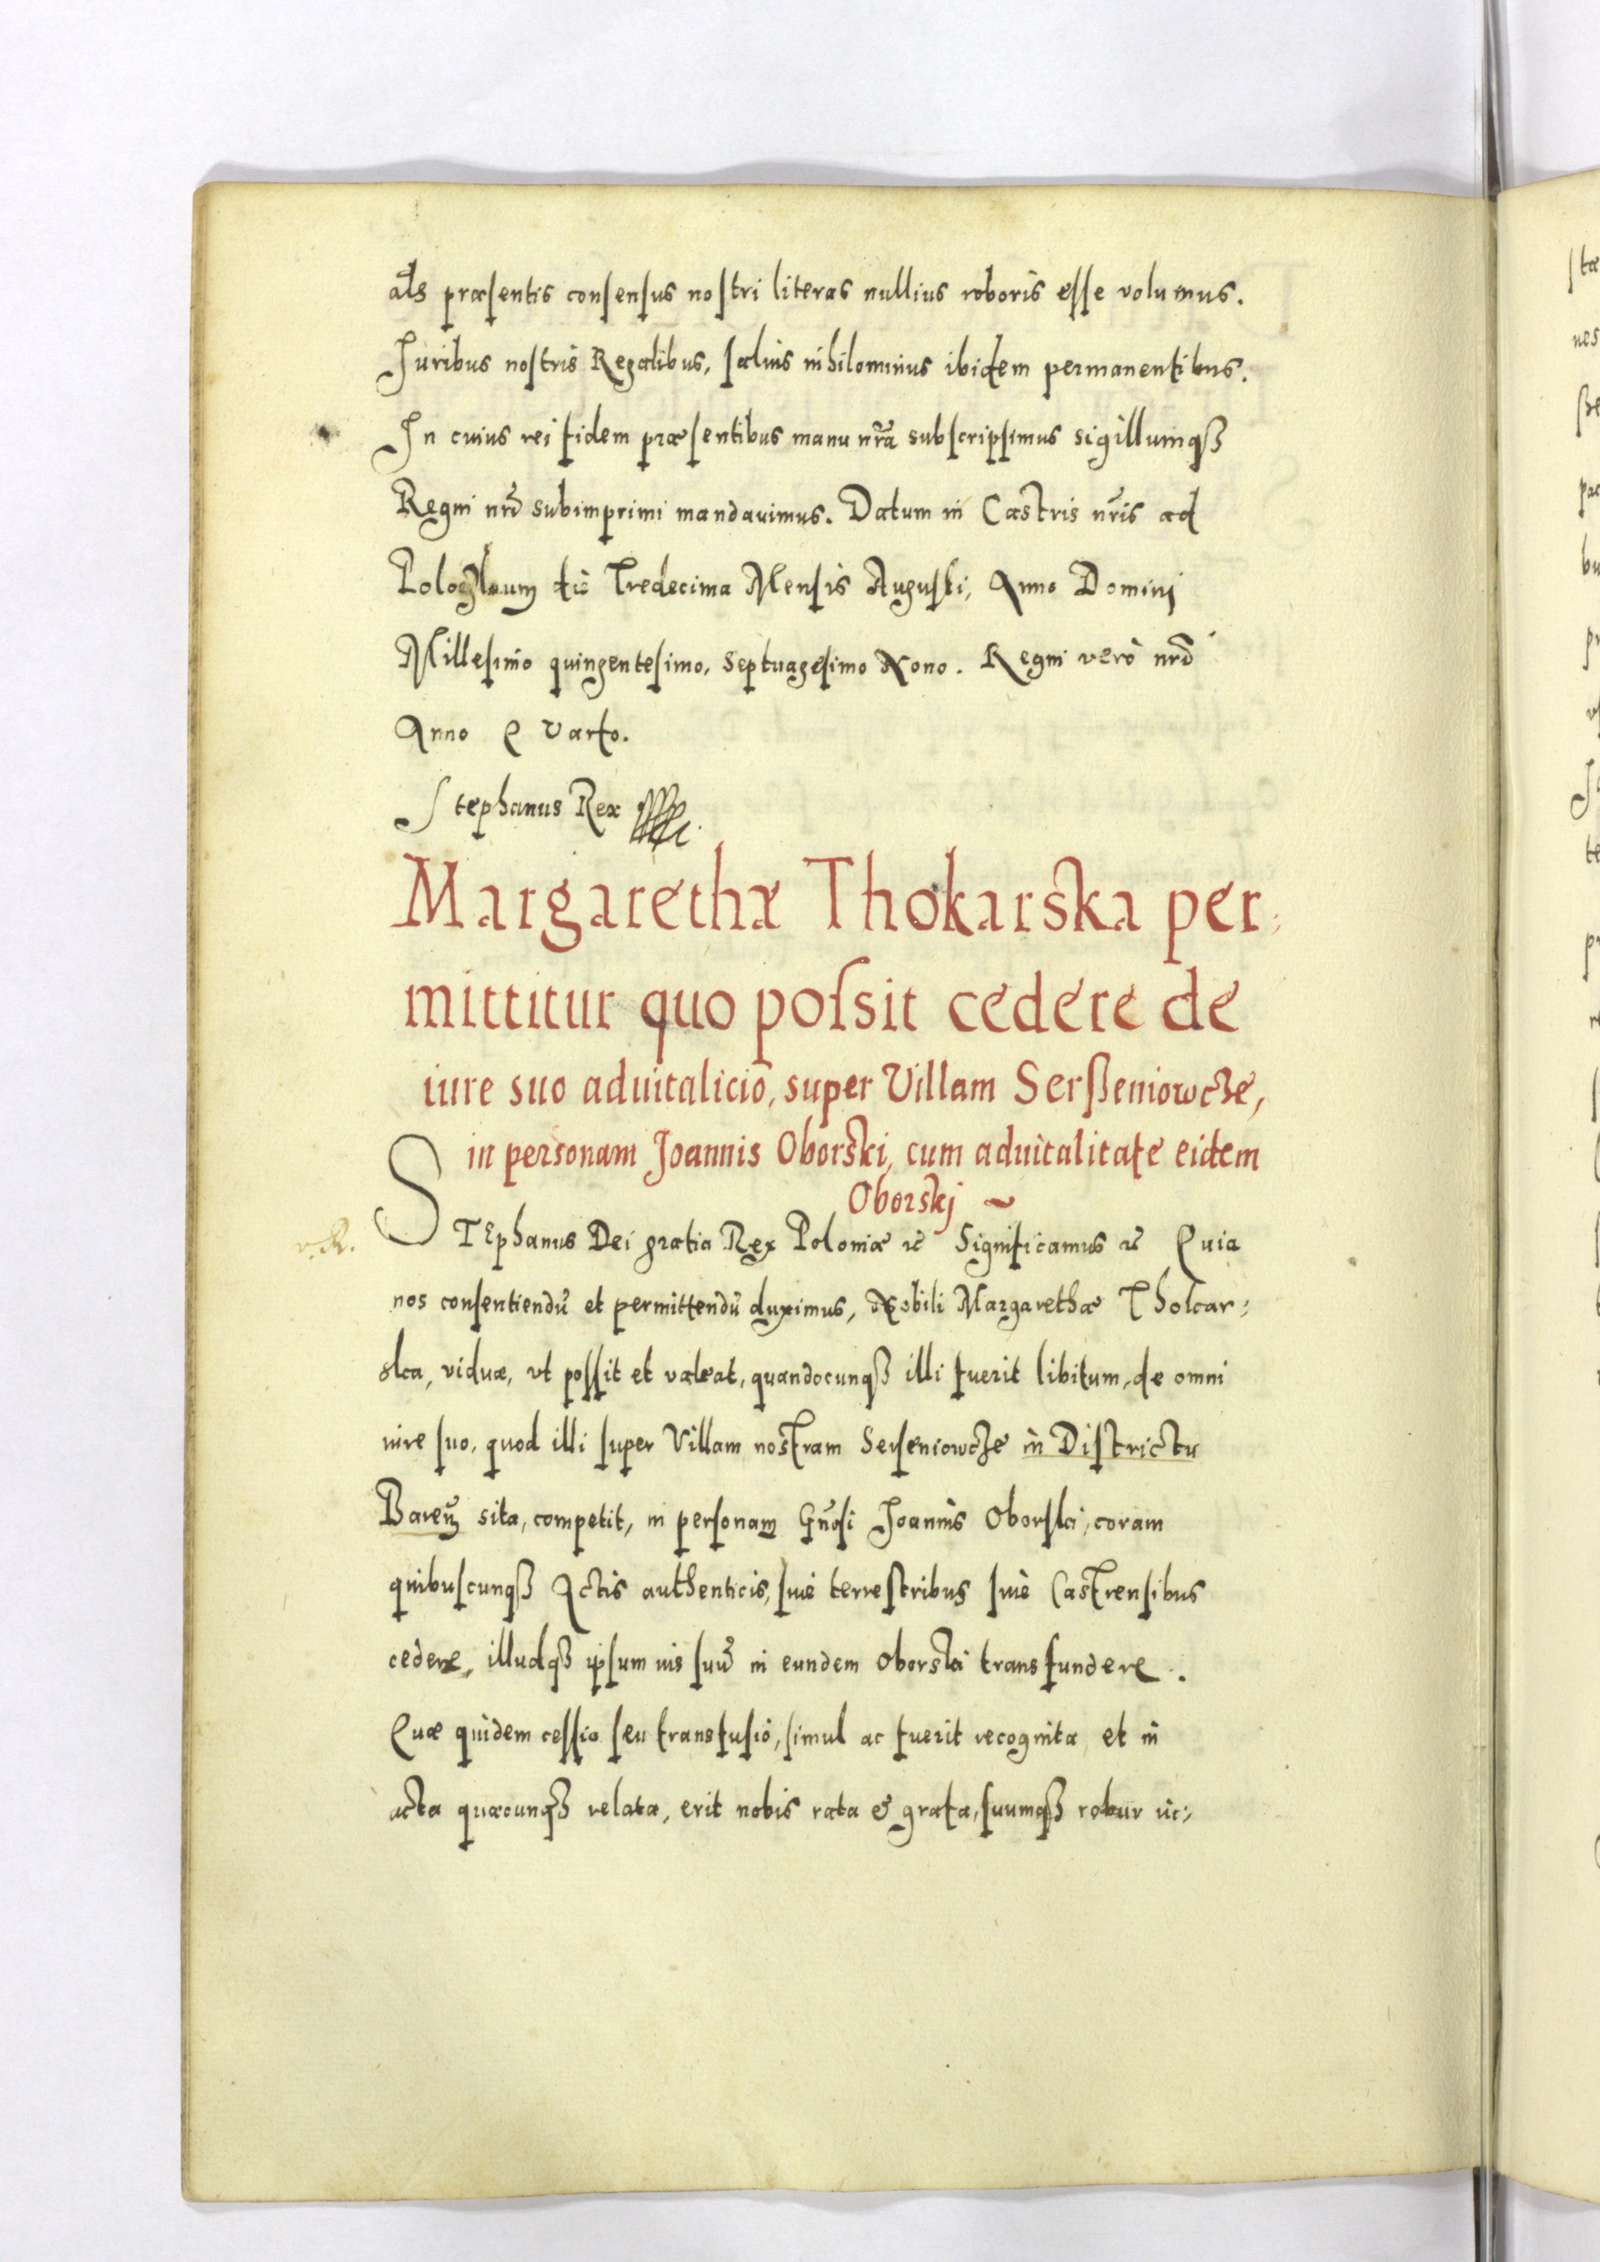 als præsentis consensus nostri literas nullius roboris esse volumus.
Iuribus nostris Regalibus, saluis nihilominus ibidem permanentibus.
In cuius rei fidem præsentibus manu nrã subscripsimus sigillumqꝫ
Regni nrĩ subimprimi mandauimus. Datum in Castris nrĩs ad
die Tredecima Mensis Augusti, Anno Domini
Millesimo quingentesimo, Septuagesimo Nono. Regni verò nrĩ
Anno Quarto.
Stephanus Rex
Margarethæ Thokarska per-
mittitur quo possit cedere de
iure suo aduitalicio, super Villam Serßeniowcze,
in personam Joannis Oborski, cum aduitalitate eidem
Oborskj ~
STEphanus Dei gratia Rex Poloniæ ꝛc Significamus ꝛc Quia
nos consentiendũ et permittendũ duximus, Nobili Margarethæ Tholcar-
ska, viduæ, vt possit et valeat, quandocunqꝫ illi fuerit libitum, de omni
iure suo, quod illi super Villam nostram Serseniowcze in Districtu
Bareñ sita, competit, in personam Gñosi Joannis Oborski, coram
quibuscunqꝫ Actis authenticis, siue terrestribus siue Castrensibus
cedere, illudqꝫ ipsum ius suũ in eundem Oborski transfundere.
Quæ quidem cessio seu transfusio, simul ac fuerit recognita et in
acta quæcunqꝫ relata, erit nobis rata & grata, suumqꝫ robur ue-